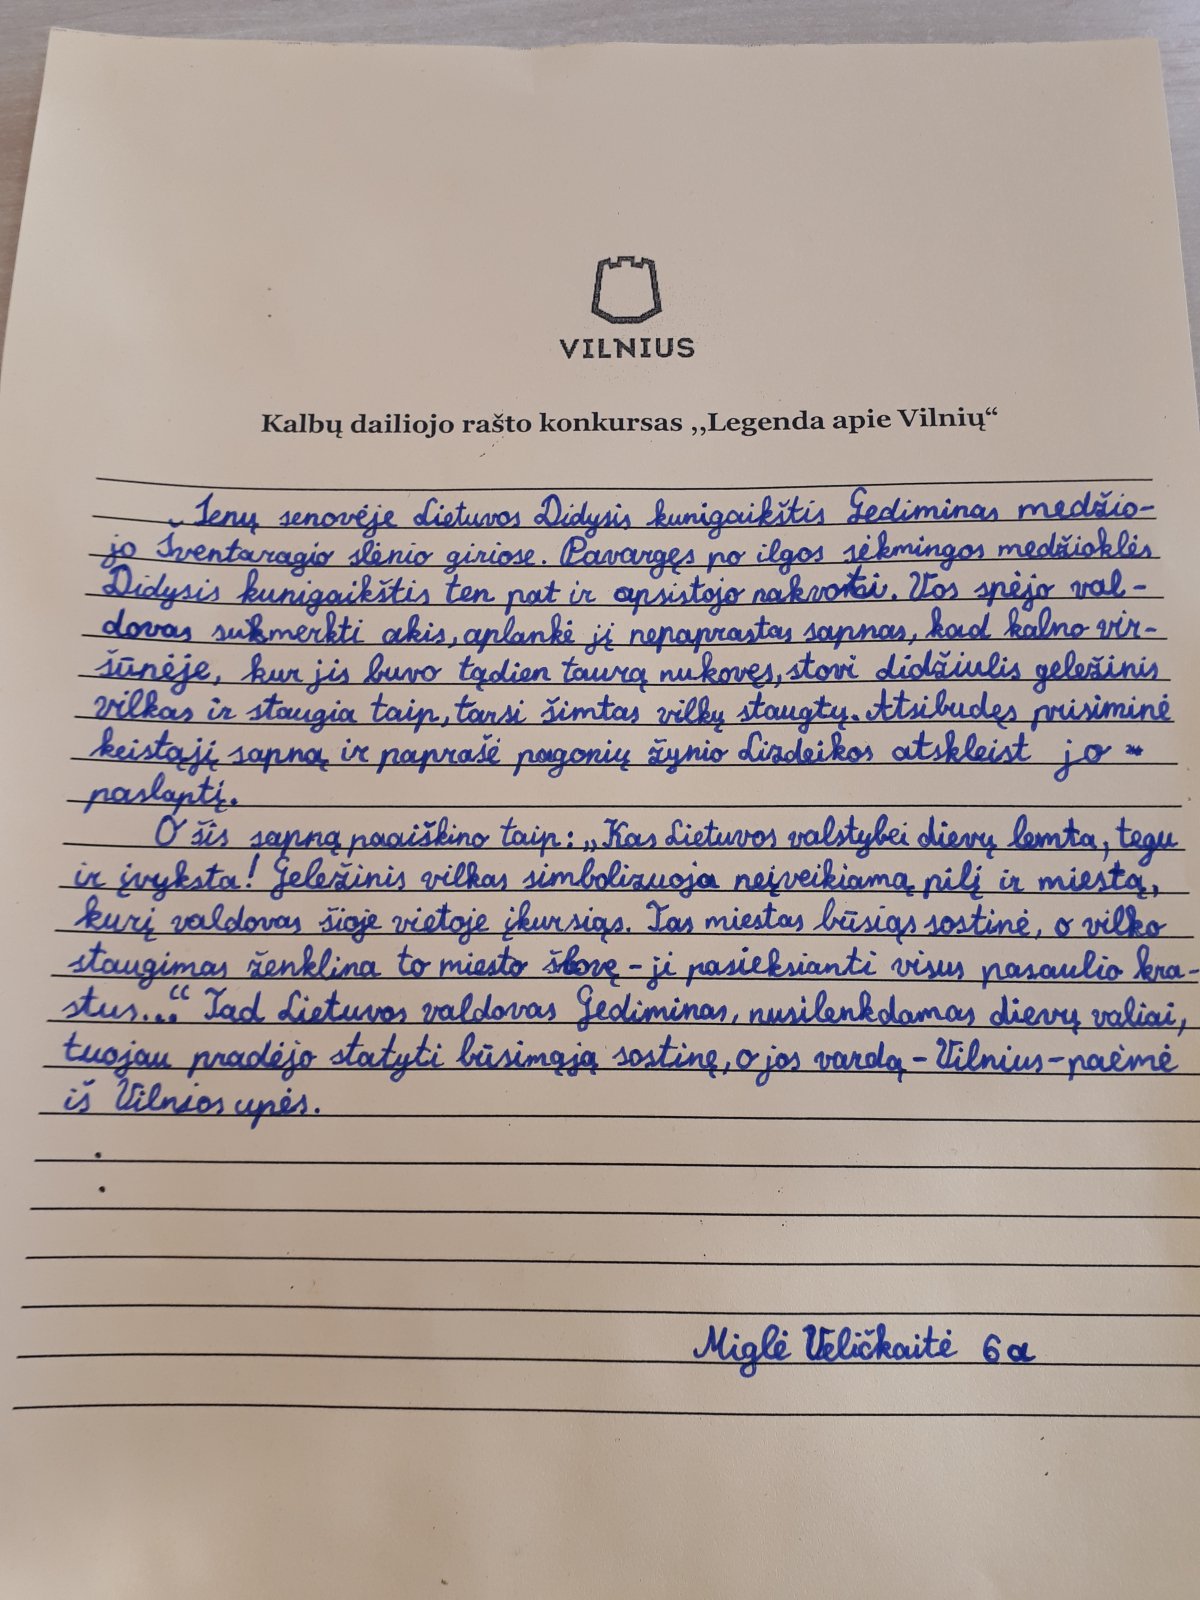 VILNIUS
Kalbų dailiojo rašto konkursas ,,Legenda apie Vilnių“
Senų senovėje Lietuvos Didysis kunigaikštis Gediminas medžio-
jo Šventaragio slėnio giriose. Pavargęs po ilgos sėkmingos medžioklės
Didysis kunigaikštis ten pat ir apsistojo nakvoti. Vos spėjo val-
dovas sukmerkti akis, aplankė jį nepaprastas sapnas, kad kalno vir-
šūnėje, kur jis buvo tądien taurą nukovęs, stovi didžiulis geležinis
vilkas ir staugia taip, tarsi šimtas vilkų staugtų. Atsibudęs prisiminė
keistąjį sapną ir paprašė pagonių žynio Lizdeikos atskleist jo
paslaptį.
O šis sapną paaiškino taip: „Kas Lietuvos valstybei dievų lemta, tegu
ir įvyksta! Geležinis vilkas simbolizuoja neįveikiamą pilį ir miestą,
kurį valdovas šioje vietoje įkursiąs. Tas miestas būsiąs sostinė, o vilko
staugimas ženklina to miesto šlovę - ji pasieksianti visus pasaulio kra-
štus...“ Tad Lietuvos valdovas Gediminas, nusilenkdamas dievų valiai,
tuojau pradėjo statyti būsimąją sostinę, o jos vardą - Vilnius - paėmė
iš Vilnios upės.
Miglė Veličkaitė 6a